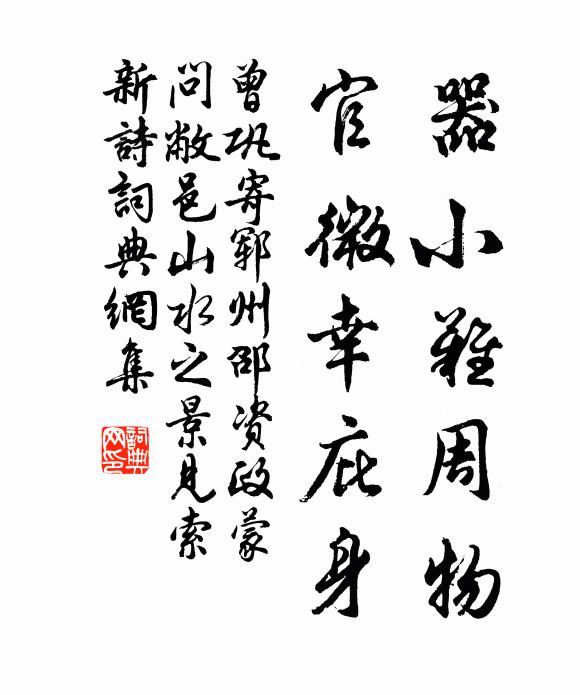 器小難周物
官微幸庇身
曾巩寄鄆州邵資政蒙
問敝邑山水之景見索
新詩詞典網集
詞典
网印